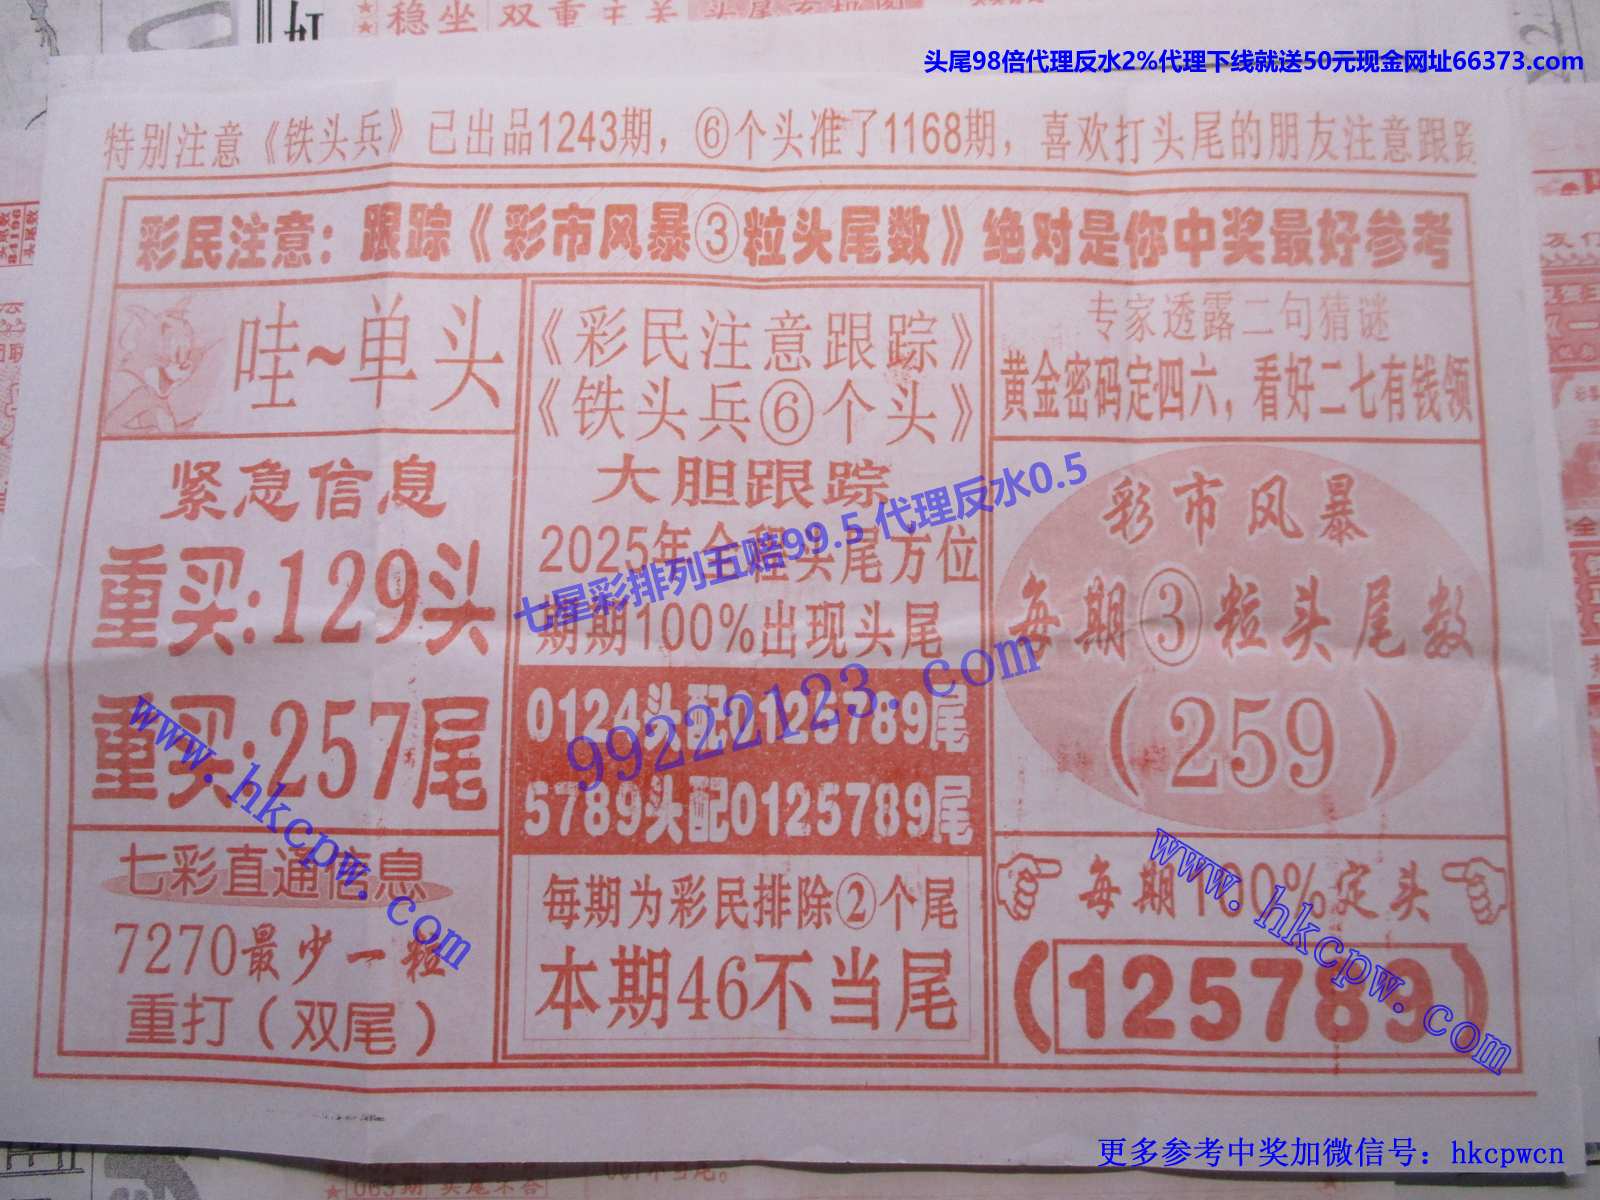 稳坐 双重主关
头尾98倍代理反水2%代理下线就送50元现金网址66373.com
特别注意《铁头兵》已出品1243期，⑥个头准了1168期，喜欢打头尾的朋友注意跟踪
彩民注意：跟踪《彩市风暴③粒头尾数》绝对是你中奖最好参考
哇~单头
紧急信息
重买:129头
重买:257尾
七彩直通信息
7270最少一粒
重打（双尾）
《彩民注意跟踪》
《铁头兵⑥个头》
大胆跟踪
2025年全程头尾方位
期期100%出现头尾
0124头配0125789尾
5789头配0125789尾
每期为彩民排除②个尾
本期46不当尾
专家透露二句猜谜
黄金密码定四六，看好二七有钱领
彩市风暴
每期③粒头尾数
（259）
每期100%定头
（125789）
七星彩排列五赔99.5 代理反水0.5
99222123.com
www.hkcpw.com
www.hkcpw.com
更多参考中奖加微信号：hkcpwcn